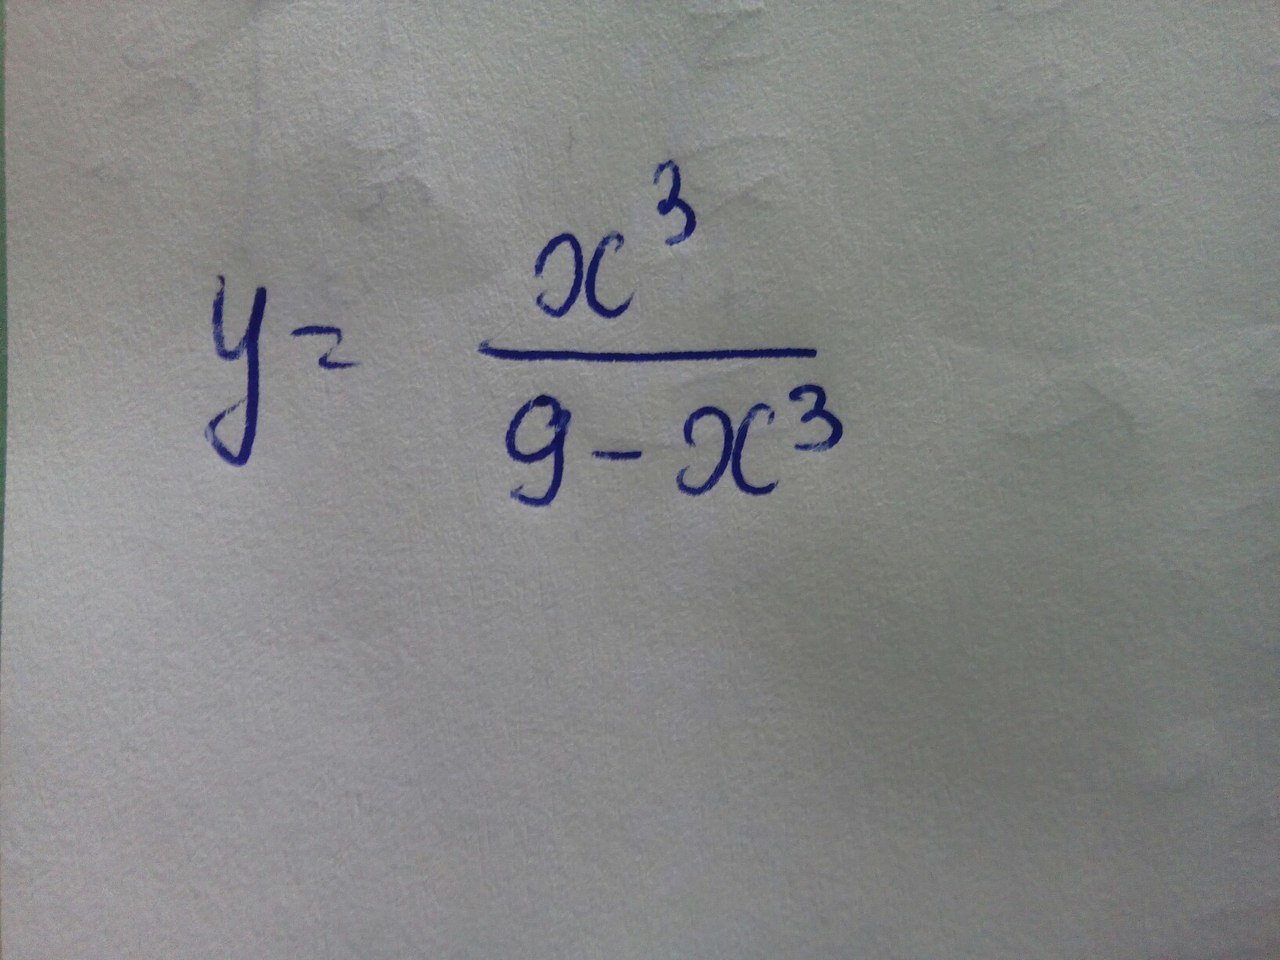 y = x³ / (9 - x³)